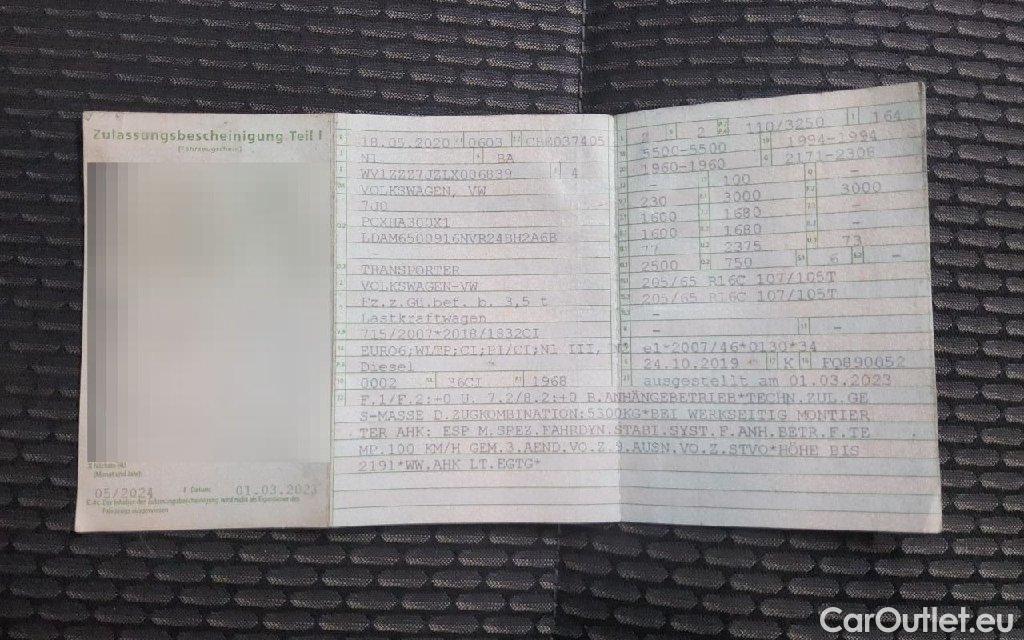 Zulassungsbescheinigung Teil I
(Fahrzeugschein)
Nächste HU
(Monat und Jahr)
05/2024
Datum: 01.03.2023
C.4c Der Inhaber der Zulassungsbescheinigung wird nicht als Eigentümer des
Fahrzeugs ausgewiesen.
18.05.2020 0603
N1 BA
4
VOLKSWAGEN, VW
7J0
PCXHA300X1
TRANSPORTER
VOLKSWAGEN-VW
Fz.z.Gü.bef. b. 3,5 t
Lastkraftwagen
715/2007*2018/1832CI
EURO6;WLTP;CI;PI/CI;N1 III,
Diesel
0002 36CI 1968
2 2 110/3250 164
5500-5500 1994-1994
1960-1960 2171-2306
- 100 -
230 3000 3000
1600 1680 -
1600 1680 -
77 2375 73
2500 750 6 -
205/65 R16C 107/105T
205/65 R16C 107/105T
-
- -
e1*2007/46*0130*34
24.10.2019 K FQ890052
ausgestellt am 01.03.2023
F.1/F.2:+0 U. 7.2/8.2:+0 B.ANHÄNGEBETRIEB*TECHN.ZUL.GE
S-MASSE D.ZUGKOMBINATION:5300KG*BEI WERKSEITIG MONTIER
TER AHK: ESP M.SPEZ.FAHRDYN.STABI.SYST.F.ANH.BETR.F.TE
MP.100 KM/H GEM.3.AEND.VO.Z.9.AUSN.VO.Z.STVO*HÖHE BIS
2191*WW.AHK LT.EGTG*
CarOutlet.eu